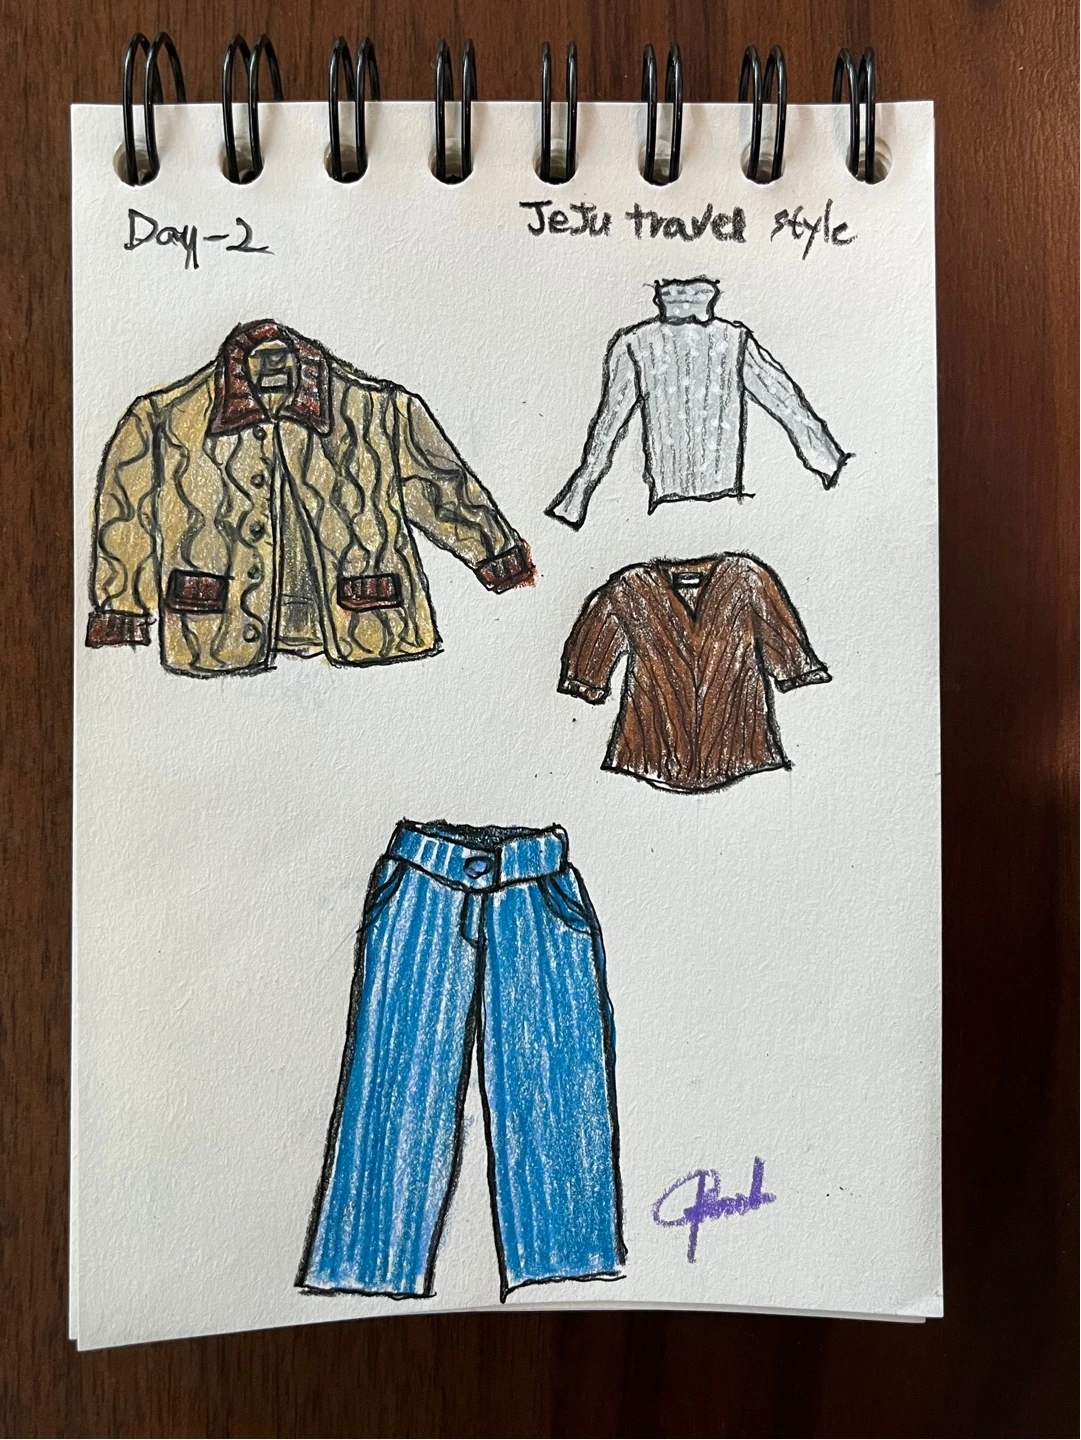 Day-2
JeJu travel style